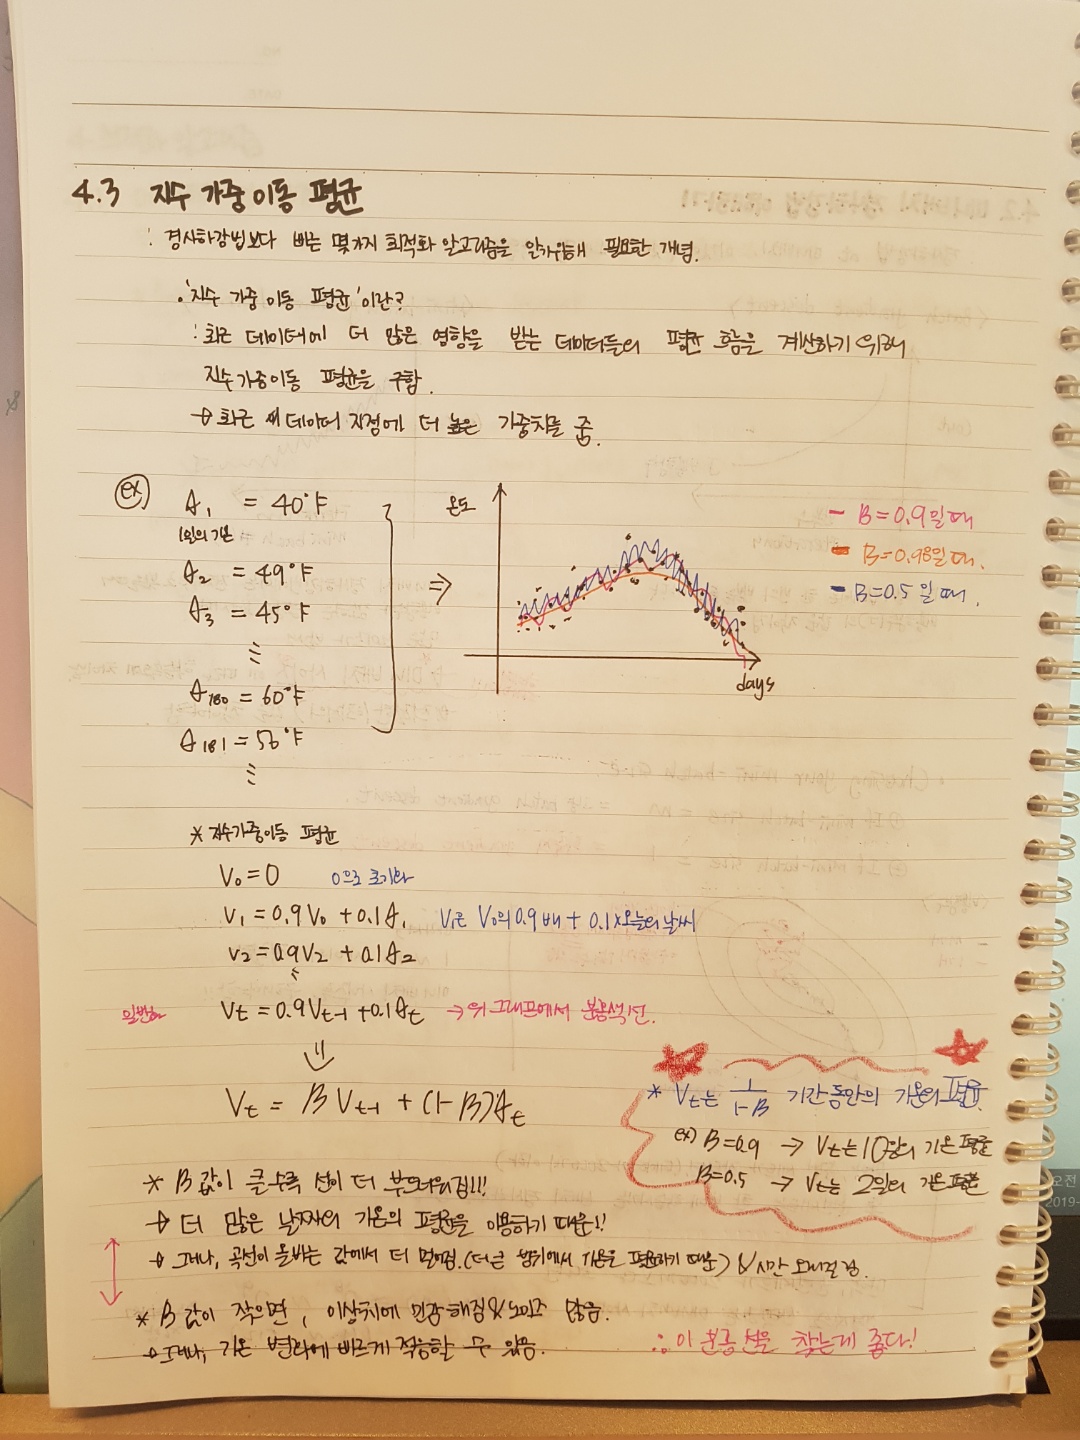 4.3 지수 가중 이동 평균
: 경사하강법보다 빠른 몇가지 최적화 알고리즘을 알기위해 필요한 개념.
. '지수 가중 이동 평균'이란?
: 최근 데이터에 더 많은 영향을 받는 데이터들의 평균 흐름을 계산하기 위해
지수가중이동 평균을 구함.
→ 최근 데이터 지점에 더 높은 가중치를 줌.
ex)
A₁ = 40°F
1일의 기온
A₂ = 49°F
A₃ = 45°F
A₁₈₀ = 60°F
A₁₈₁ = 56°F
⇒
온도
days
- B=0.9일때
- B=0.98일때.
- B=0.5일때.
* 지수가중이동 평균
V₀=0 0으로 초기화
V₁=0.9V₀ +0.1A₁ V₁은 V₀의 0.9배 + 0.1×오늘의 날씨
V₂=0.9V₂ +0.1A₂
일반화 Vt=0.9Vt-1 +0.1At → 위 그래프에서 분홍색선.
⇓
Vt = BVt-1 + (1-B)At
* Vt는 1/1-B 기간동안의 기온의 평균.
ex) B=0.9 → Vt는 10일의 기온 평균
B=0.5 → Vt는 2일의 기온 평균
* B값이 클수록 선이 더 부드러워짐!!!
→ 더 많은 날짜의 기온의 평균을 이용하기 때문!!
→ 그러나, 곡선이 올바른 값에서 더 멀어짐.(더 큰 범위에서 기온을 평균하기 때문) & 시간 오래걸림.
* B값이 작으면, 이상치에 민감해짐 & 노이즈 많음.
→ 그러나, 기온 변화에 빠르게 적응할 수 있음.
∴ 이 분홍 선을 찾는게 좋다!